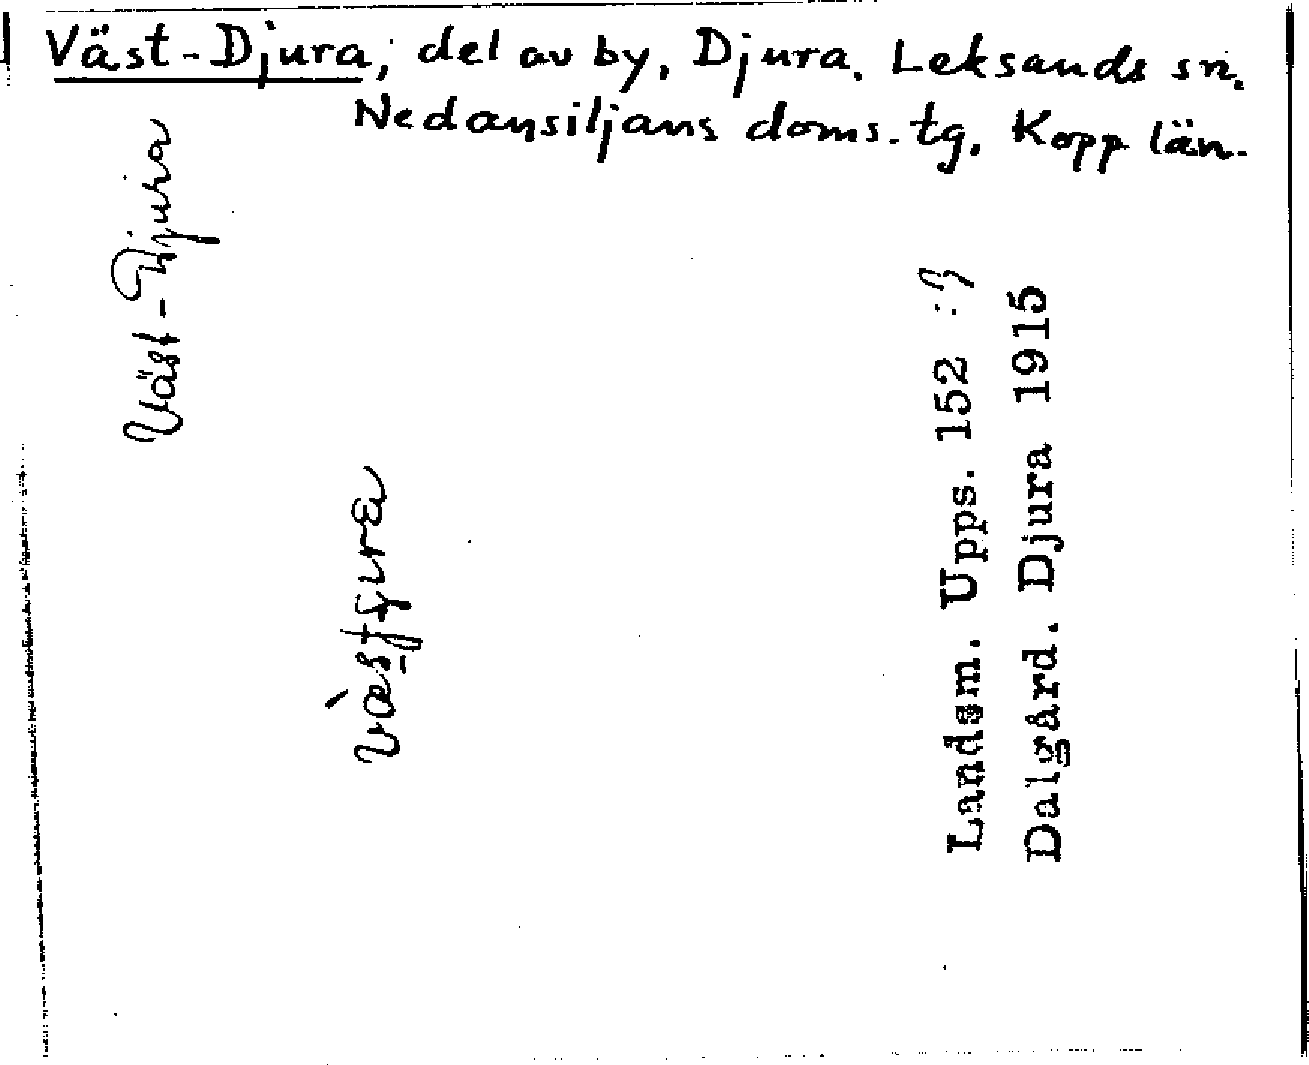 Väst-Djura, del av by, Djura, Leksands sn.
Nedansiljans doms. tg, Kopp län.
Väst-Djura
Landsm. Upps. 152 :
Dalgård. Djura 1915